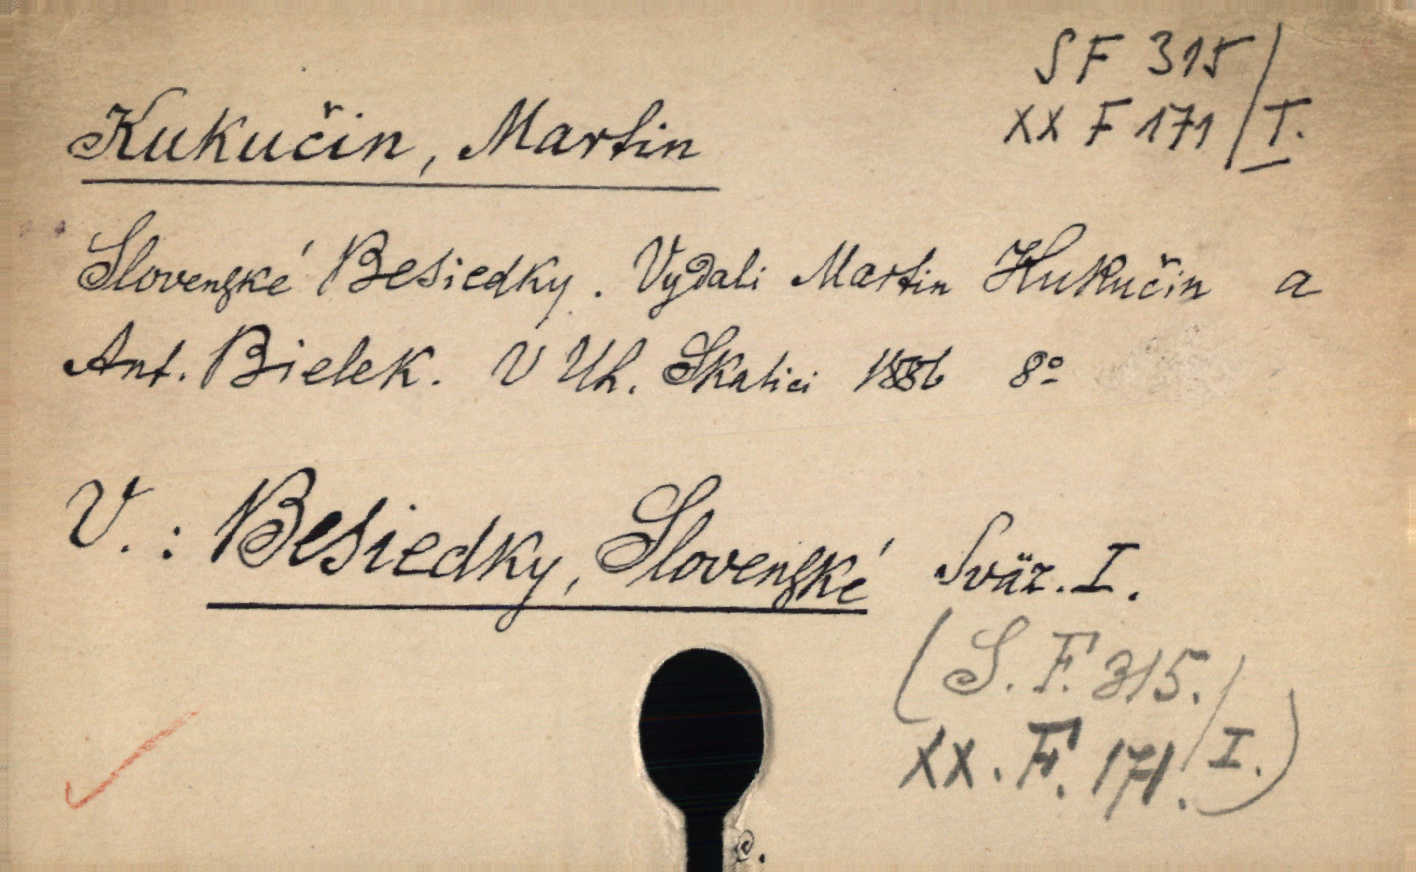 SF 315/
XX F 171/I.
Kukučin, Martin
Slovenské Besiedky. Vydali Martin Kukučin a
Ant. Bielek. V Uh. Skalici 1886 8º
V.: Besiedky, Slovenské Sväz. I.
(S. F. 315./
XX. F. 171./I.)